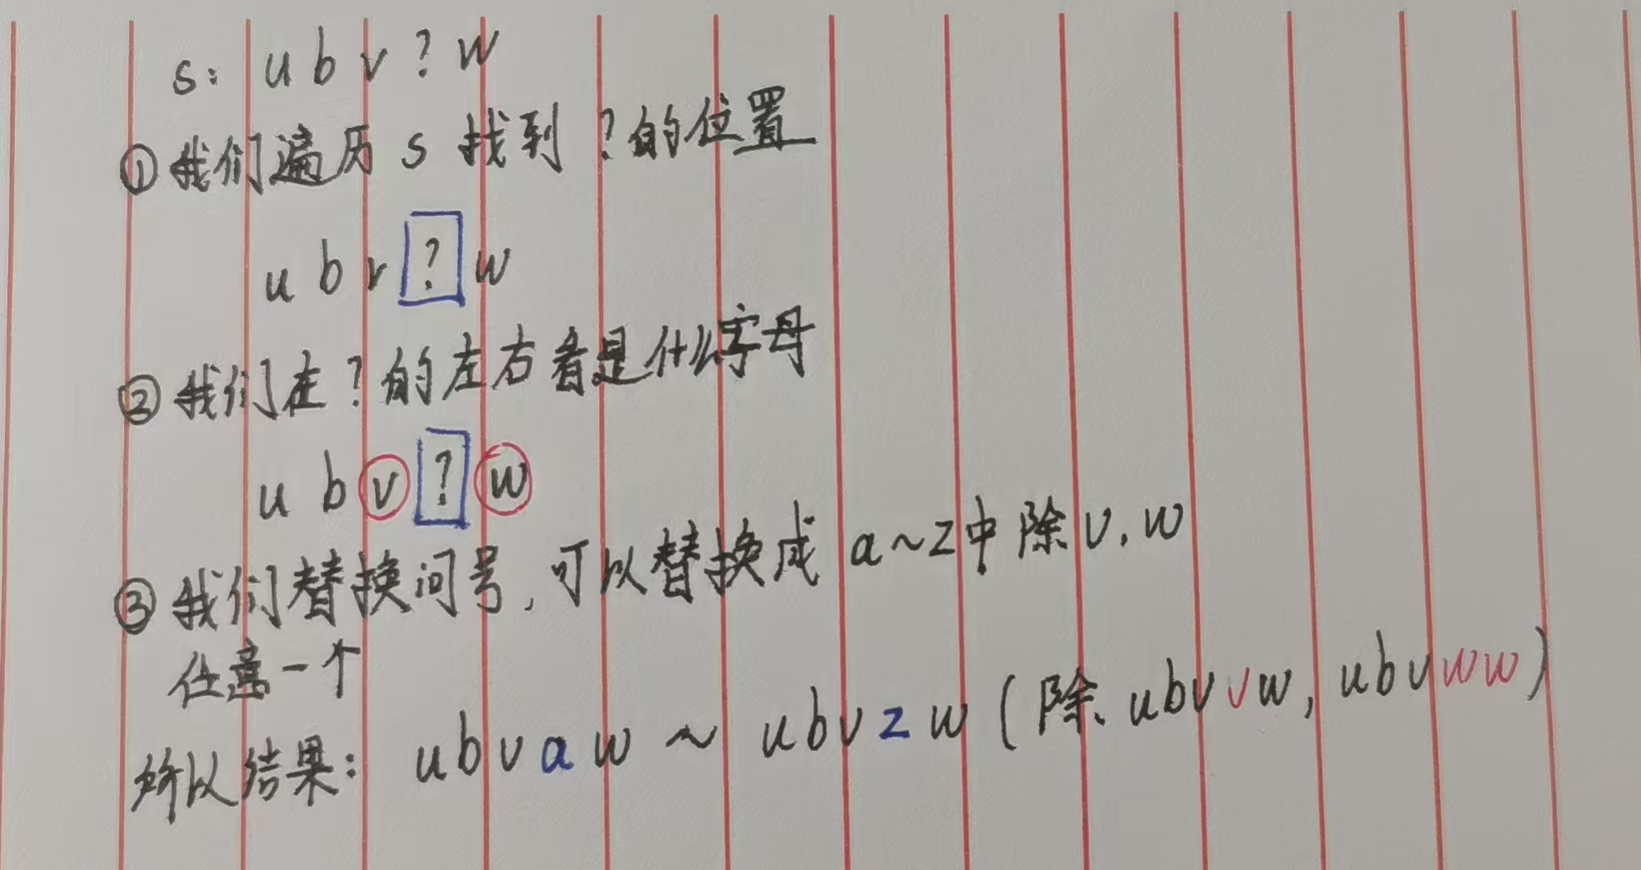 s: u b v ? w
①我们遍历 s 找到 ? 的位置
u b v ? w
②我们在 ? 的左右看是什么字母
u b v ? w
③我们替换问号, 可以替换成 a~z中除 v, w
任意一个
所以结果: ubvaw ~ ubvzw (除 ubvvw, ubvww)